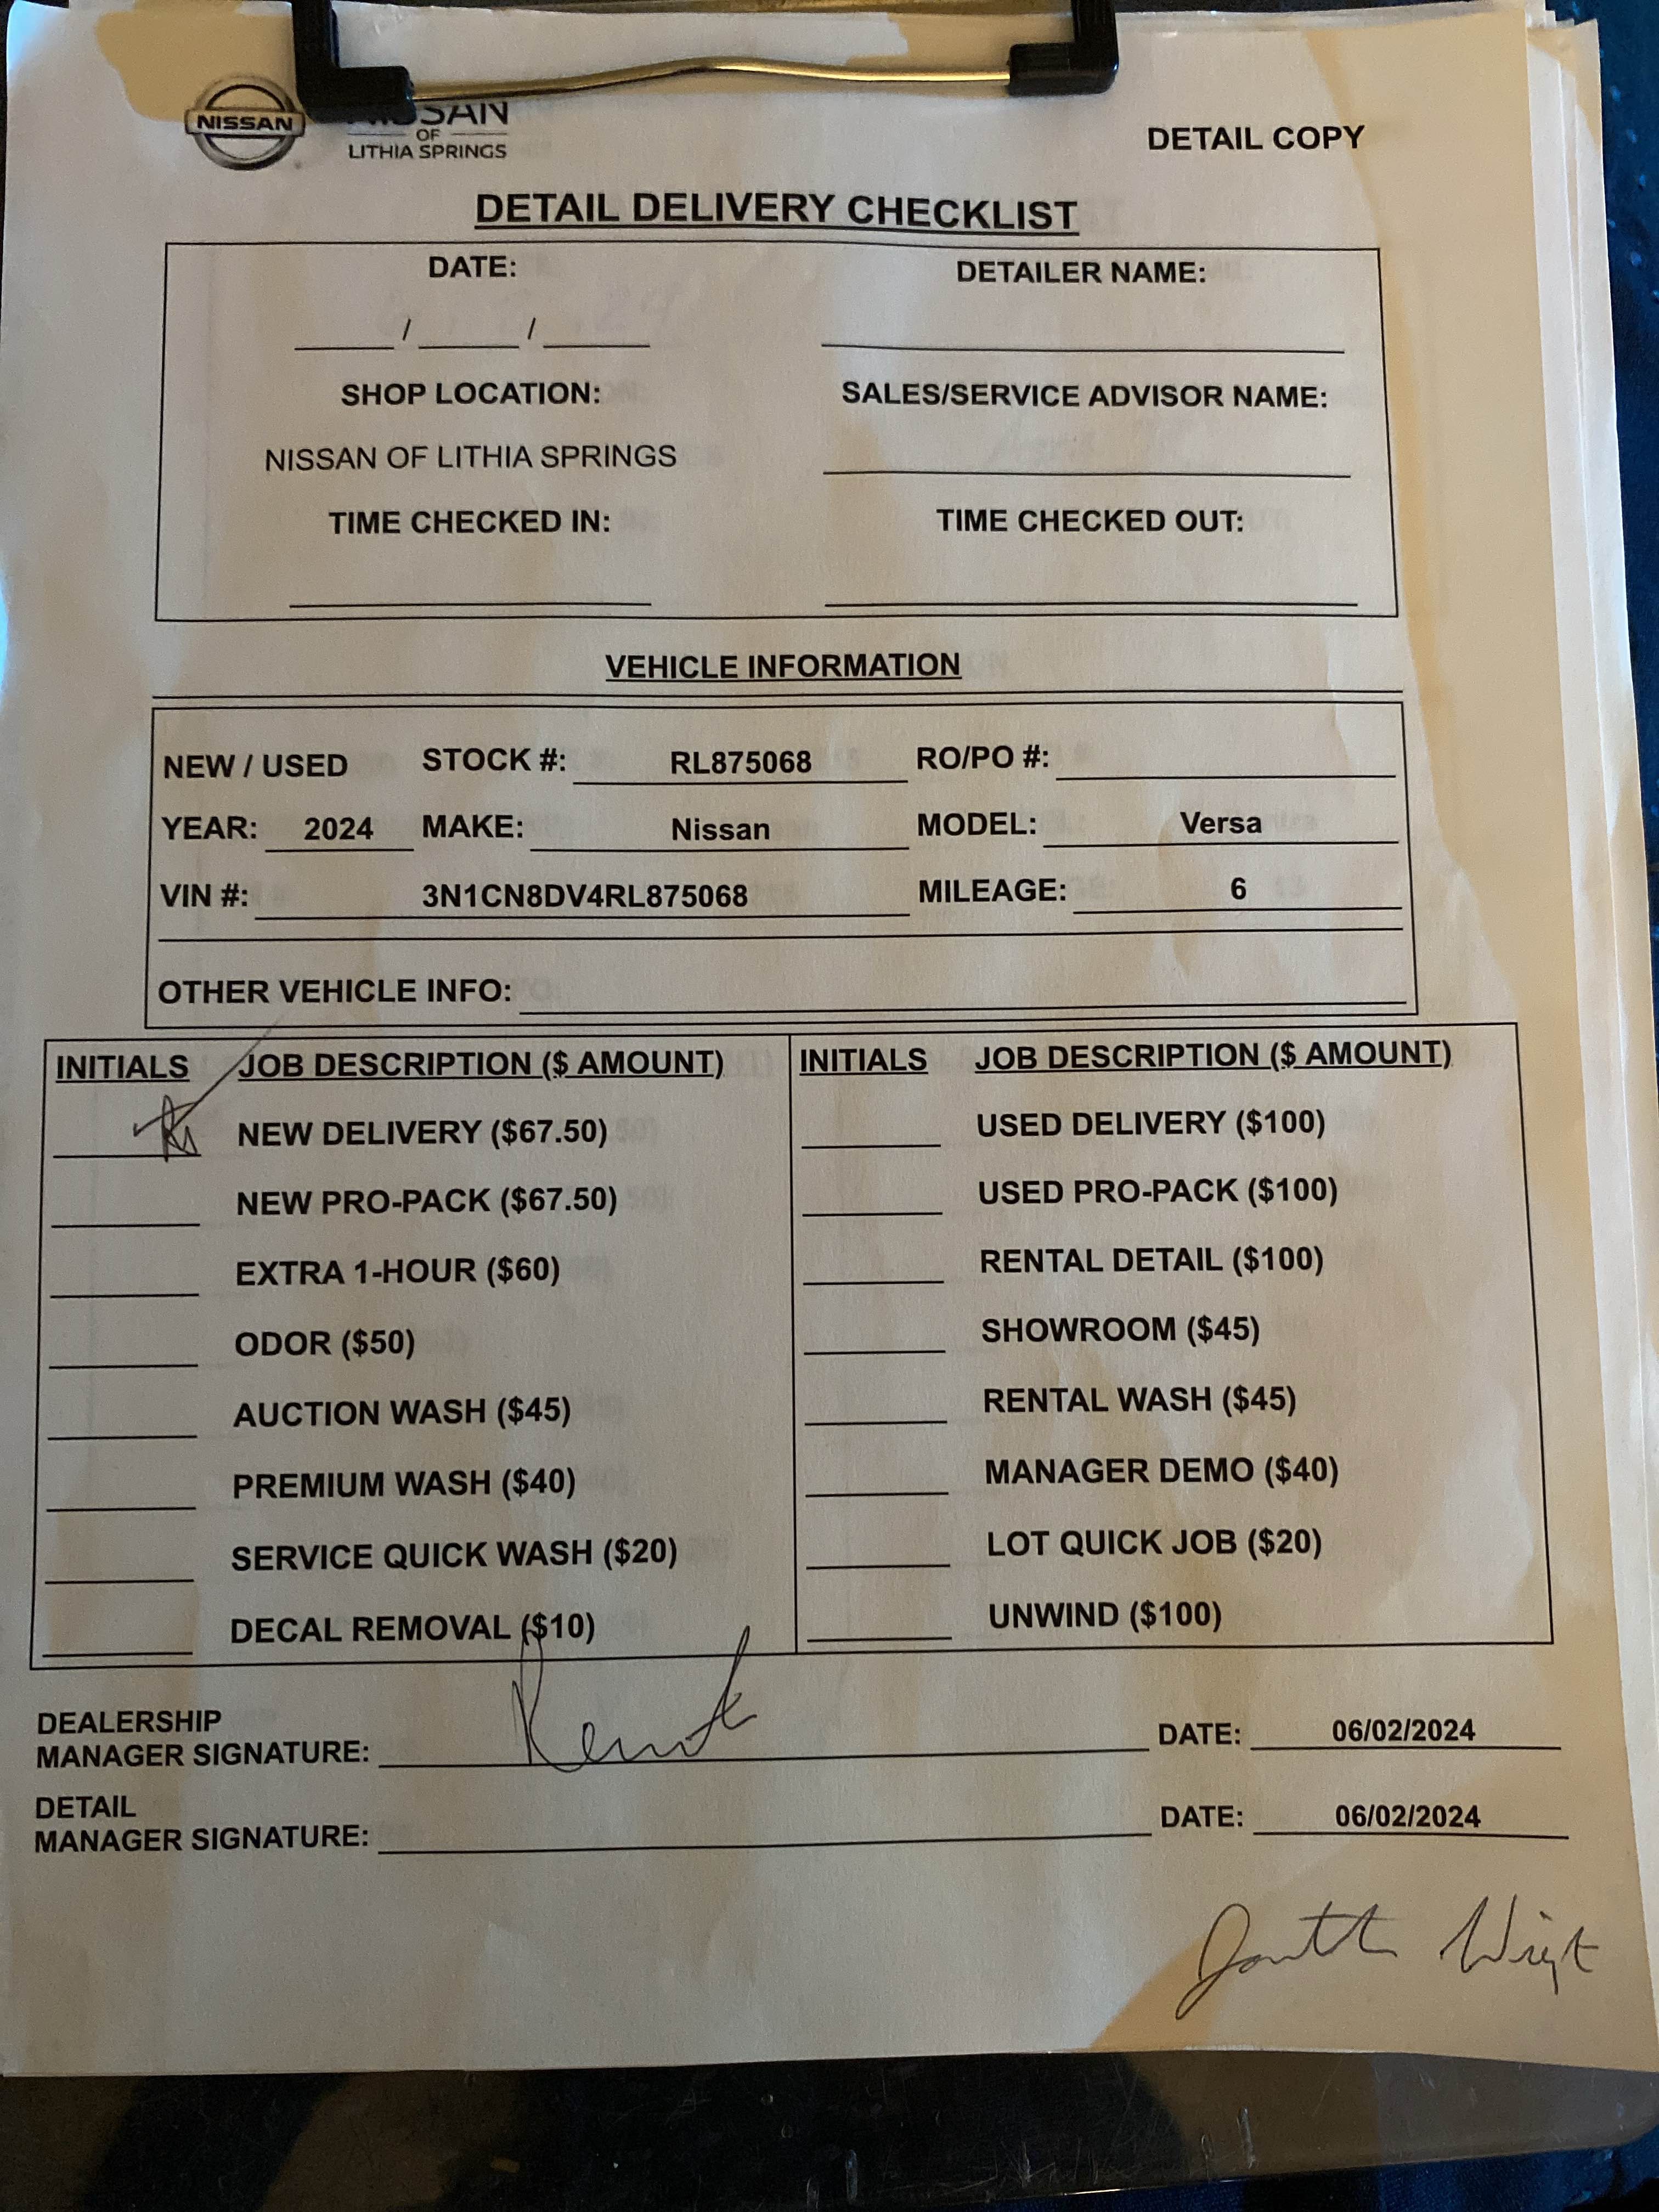 NISSAN
OF
LITHIA SPRINGS
DETAIL COPY
DETAIL DELIVERY CHECKLIST
DATE: DETAILER NAME:
/ /
SHOP LOCATION: SALES/SERVICE ADVISOR NAME:
NISSAN OF LITHIA SPRINGS
TIME CHECKED IN: TIME CHECKED OUT:
VEHICLE INFORMATION
NEW / USED STOCK #: RL875068 RO/PO #:
YEAR: 2024 MAKE: Nissan MODEL: Versa
VIN #: 3N1CN8DV4RL875068 MILEAGE: 6
OTHER VEHICLE INFO:
INITIALS JOB DESCRIPTION ($ AMOUNT) INITIALS JOB DESCRIPTION ($ AMOUNT)
NEW DELIVERY ($67.50) USED DELIVERY ($100)
NEW PRO-PACK ($67.50) USED PRO-PACK ($100)
EXTRA 1-HOUR ($60) RENTAL DETAIL ($100)
ODOR ($50) SHOWROOM ($45)
AUCTION WASH ($45) RENTAL WASH ($45)
PREMIUM WASH ($40) MANAGER DEMO ($40)
SERVICE QUICK WASH ($20) LOT QUICK JOB ($20)
DECAL REMOVAL ($10) UNWIND ($100)
DEALERSHIP
MANAGER SIGNATURE: DATE: 06/02/2024
DETAIL
MANAGER SIGNATURE: DATE: 06/02/2024